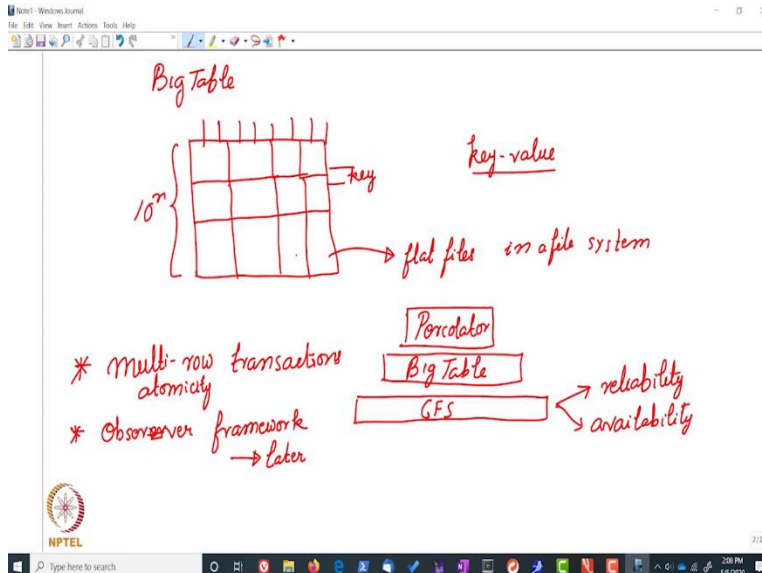 Note1 - Windows Journal
File Edit View Insert Actions Tools Help
Big Table
key-value
10ⁿ
key
flat files in a file system
Percolator
Big Table
GFS
reliability
availability
* Multi-row transactions
atomicity
* Observer framework
later
NPTEL
2/2
Type here to search
2:08 PM